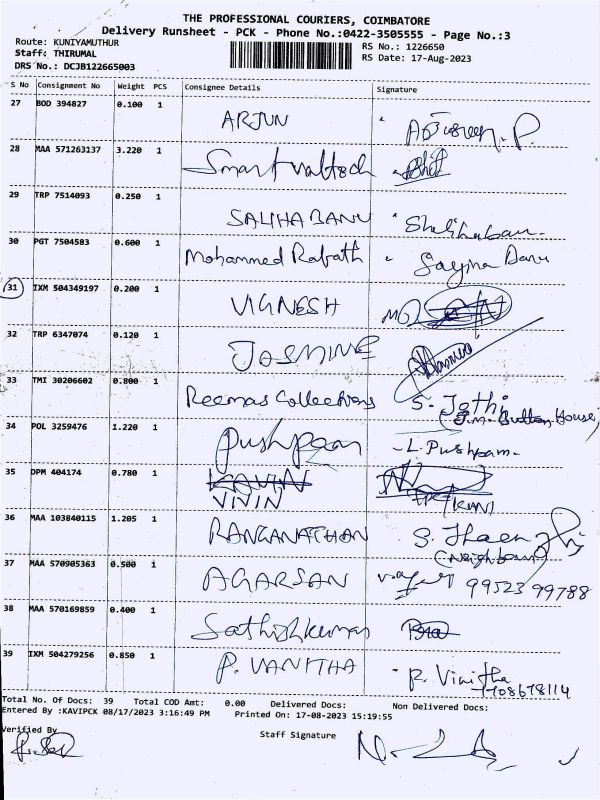 THE PROFESSIONAL COURIERS, COIMBATORE
Delivery Runsheet - PCK - Phone No.:0422-3505555 - Page No.:3
Route: KUNIYAMUTHUR RS No.: 1226650
Staff: THIRUMAL RS Date: 17-Aug-2023
DRS No.: DCJB122665003
S No Consignment No Weight PCS Consignee Details Signature
27 BOD 394827 0.100 1 ARJUN
28 MAA 571263137 3.220 1 Smart valtech
29 TRP 7514093 0.250 1 SALIHA BANU
30 PGT 7504583 0.600 1 Mohammed Rafath Sayina Banu
31 IXM 504349197 0.200 1 VIGNESH
32 TRP 6347074 0.120 1 JASMINE
33 TMI 30206602 0.800 1 Reemas Collections S. Jothi
(J.M. Button House,
34 POL 3259476 1.220 1 L. Pushpam
35 DPM 404174 0.780 1 KAVIN
VIVIN
36 MAA 103840115 1.205 1 RANGANATHAN
(Neighbour)
37 MAA 570905363 0.500 1 AGARSAN 99523 99788
38 MAA 570169859 0.400 1 Sathishkumar
39 IXM 504279256 0.850 1 P. VANITHA P. Vinitha
7708678114
Total No. Of Docs: 39 Total COD Amt: 0.00 Delivered Docs: Non Delivered Docs:
Entered By :KAVIPCK 08/17/2023 3:16:49 PM Printed On: 17-08-2023 15:19:55
Verified By Staff Signature